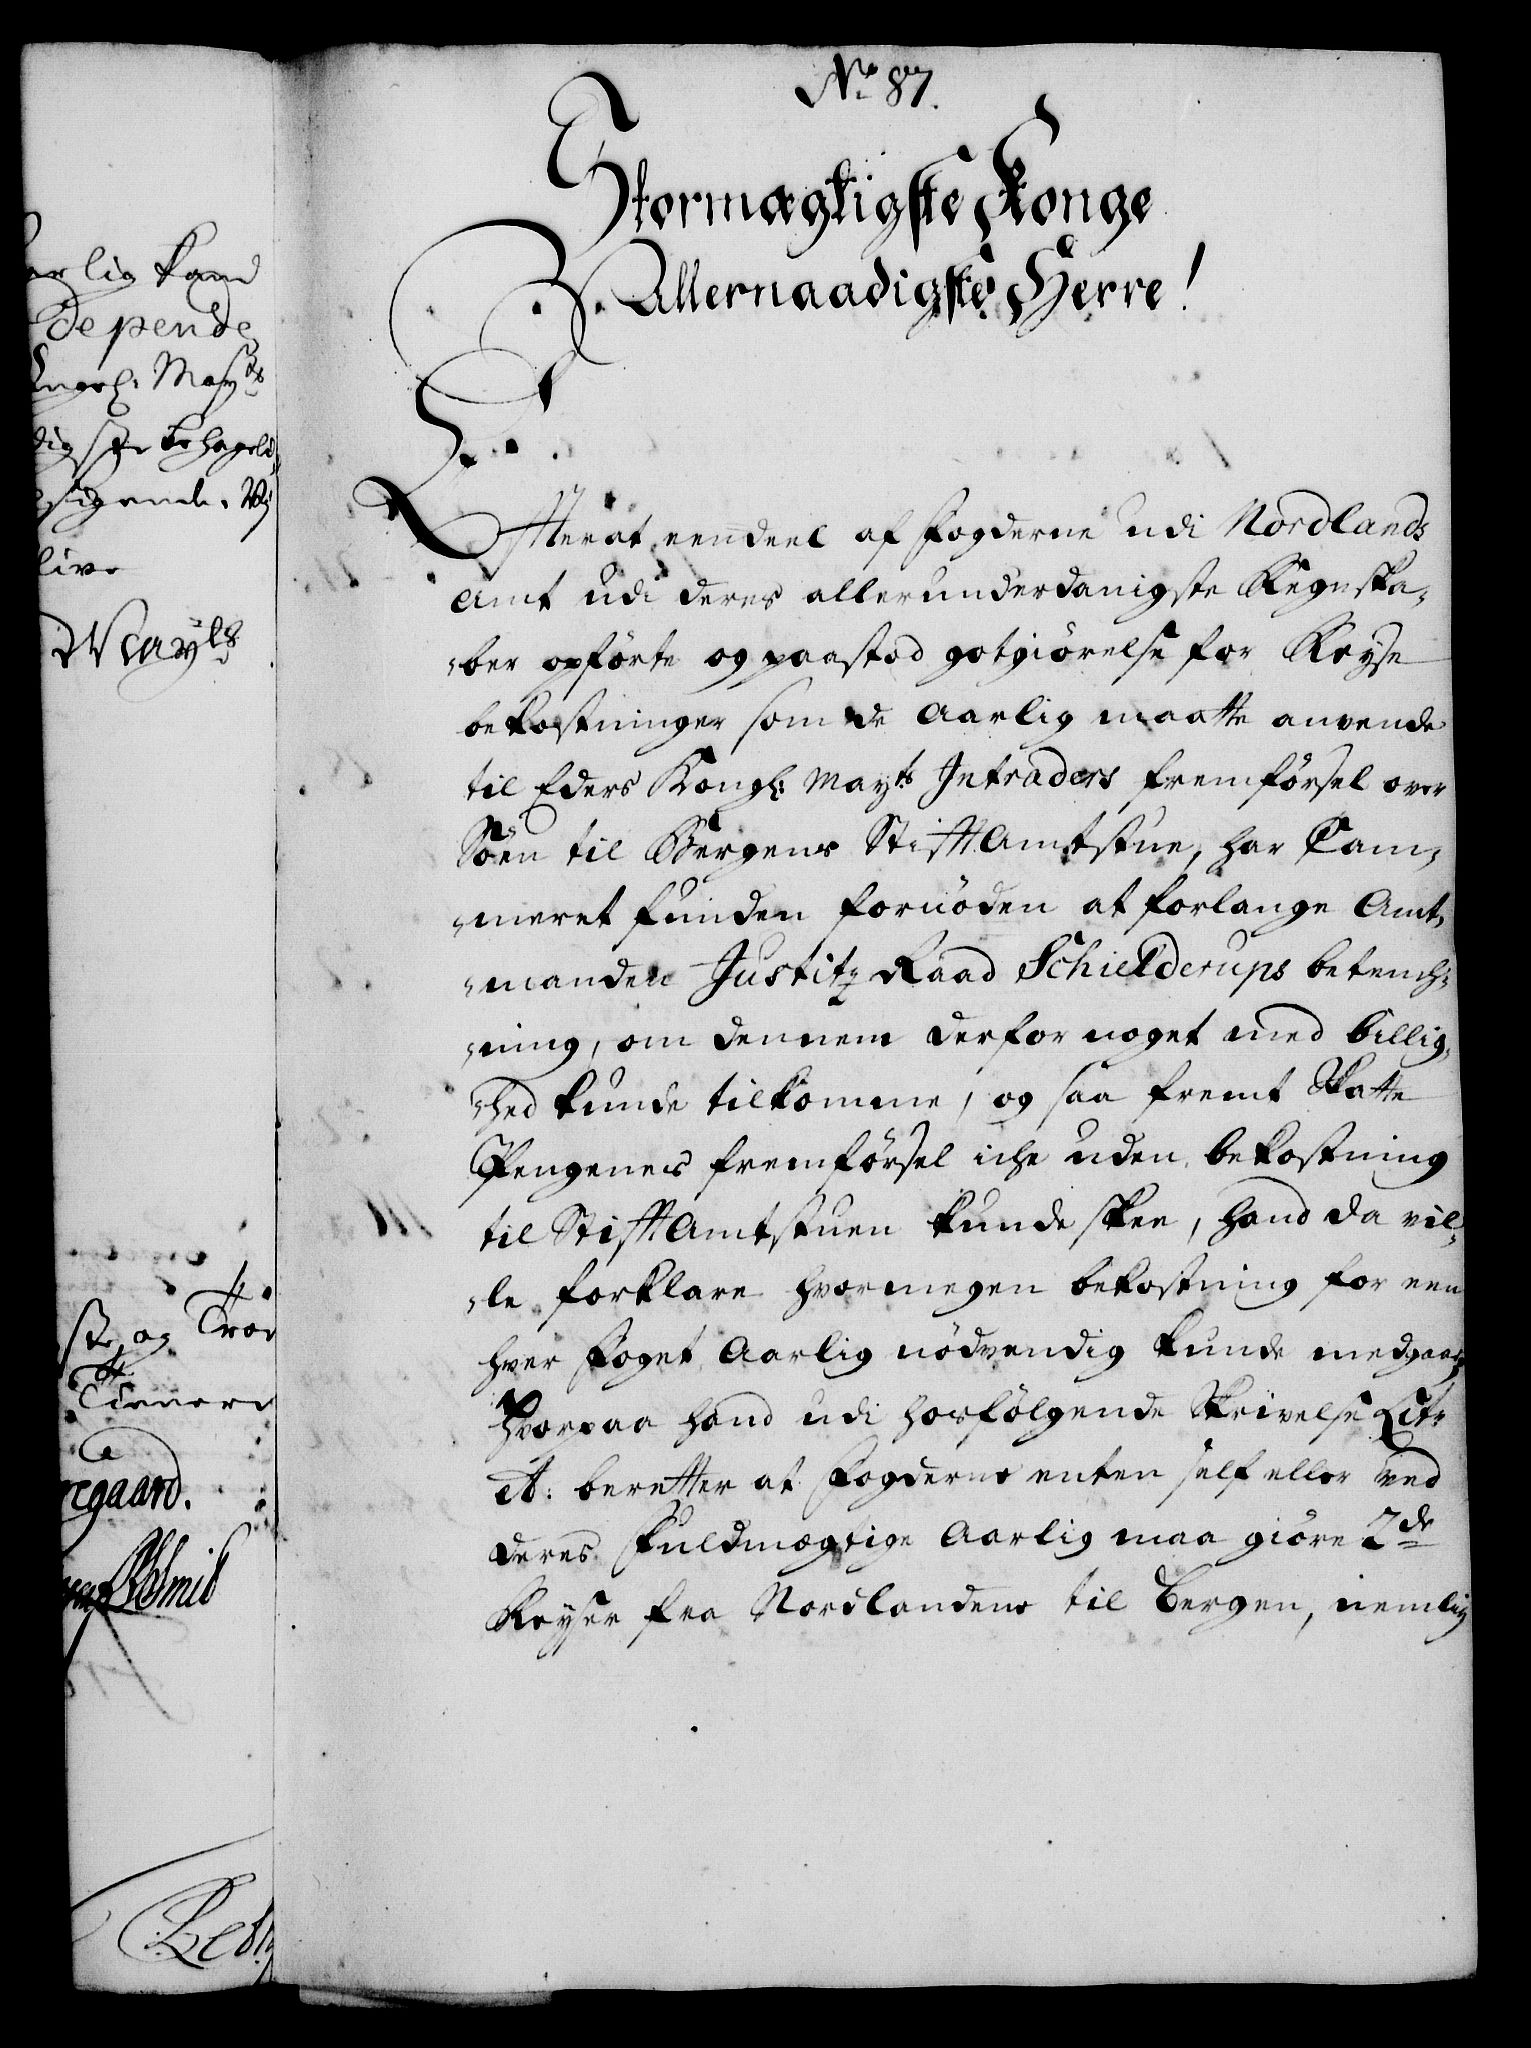 No 87.
Stormægtigste Konge
Allernaadigste Herre!
Efterat eendeel af Fogderne udi Nordlands
Amt udi deres allerunderdanigste Regnska-
-ber opförte og paastod gotgiörelse for Reyse
bekostninger som de Aarlig maatte anvende
til Eders Kongl: Mayts Intraders fremförsel over
Söen til Bergens StiftAmtstue, har Cam-
-meret funden fornöden at forlange Amt-
-manden Justitz Raad Schielderups betench-
-ning, om dennem derfor noget med billig-
-hed kunde tilkomme, og saa fremt Skatte
Pengenes fremförsel iche uden bekostning
til StiftAmtstuen kunde skee, hand da vil-
-le forklare hvormegen bekostning for een
hver Foget Aarlig nödvendig kunde medgaae;
Hvorpaa hand udi hosfölgende Skrivelse Litr
A: beretter at Fogderne enten self eller ved
deres Fuldmægtige Aarlig maa giöre 2de
Reyser fra Nordlandene til Bergen, nemlig
arlig kand
depende
Kngl: Mayts
digste behageli
live
Mayts
og Troe
Tienere
Schmidt